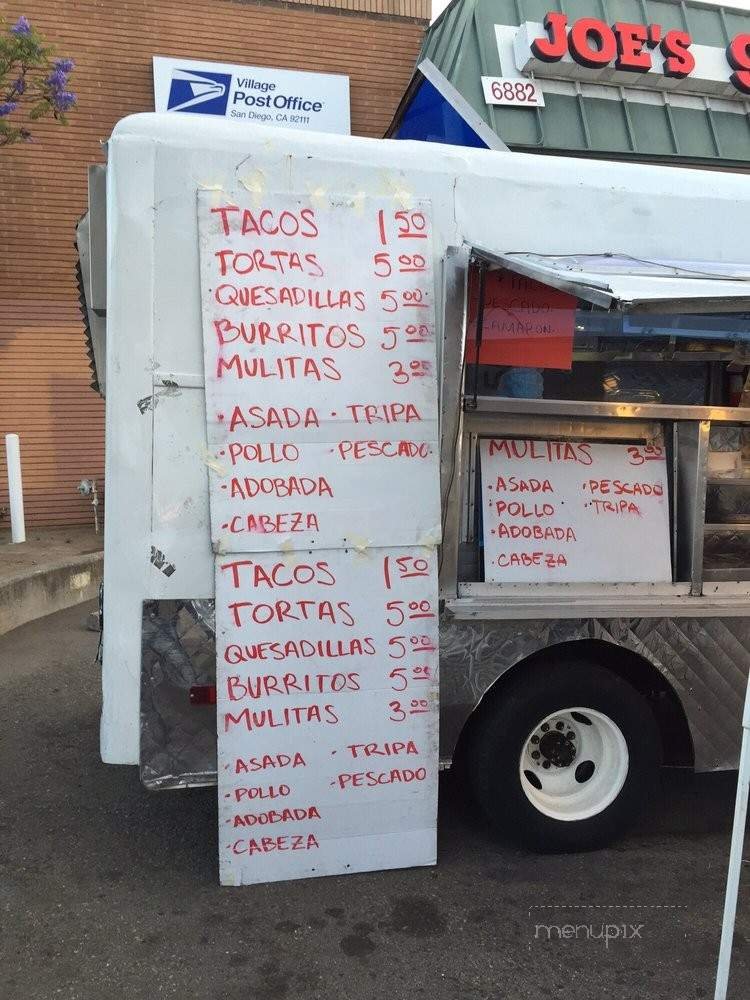 Village
Post Office
San Diego, CA 92111
JOE'S
6882
TACOS 1 50
TORTAS 5 00
QUESADILLAS 5 00
BURRITOS 5 00
MULITAS 3 00
• ASADA • TRIPA
• POLLO • PESCADO
• ADOBADA
• CABEZA
TACOS 1 50
TORTAS 5 00
QUESADILLAS 5 00
BURRITOS 5 00
MULITAS 3 00
• ASADA • TRIPA
• POLLO • PESCADO
• ADOBADA
• CABEZA
MULITAS 3 00
• ASADA • PESCADO
• POLLO • TRIPA
• ADOBADA
• CABEZA
menupix